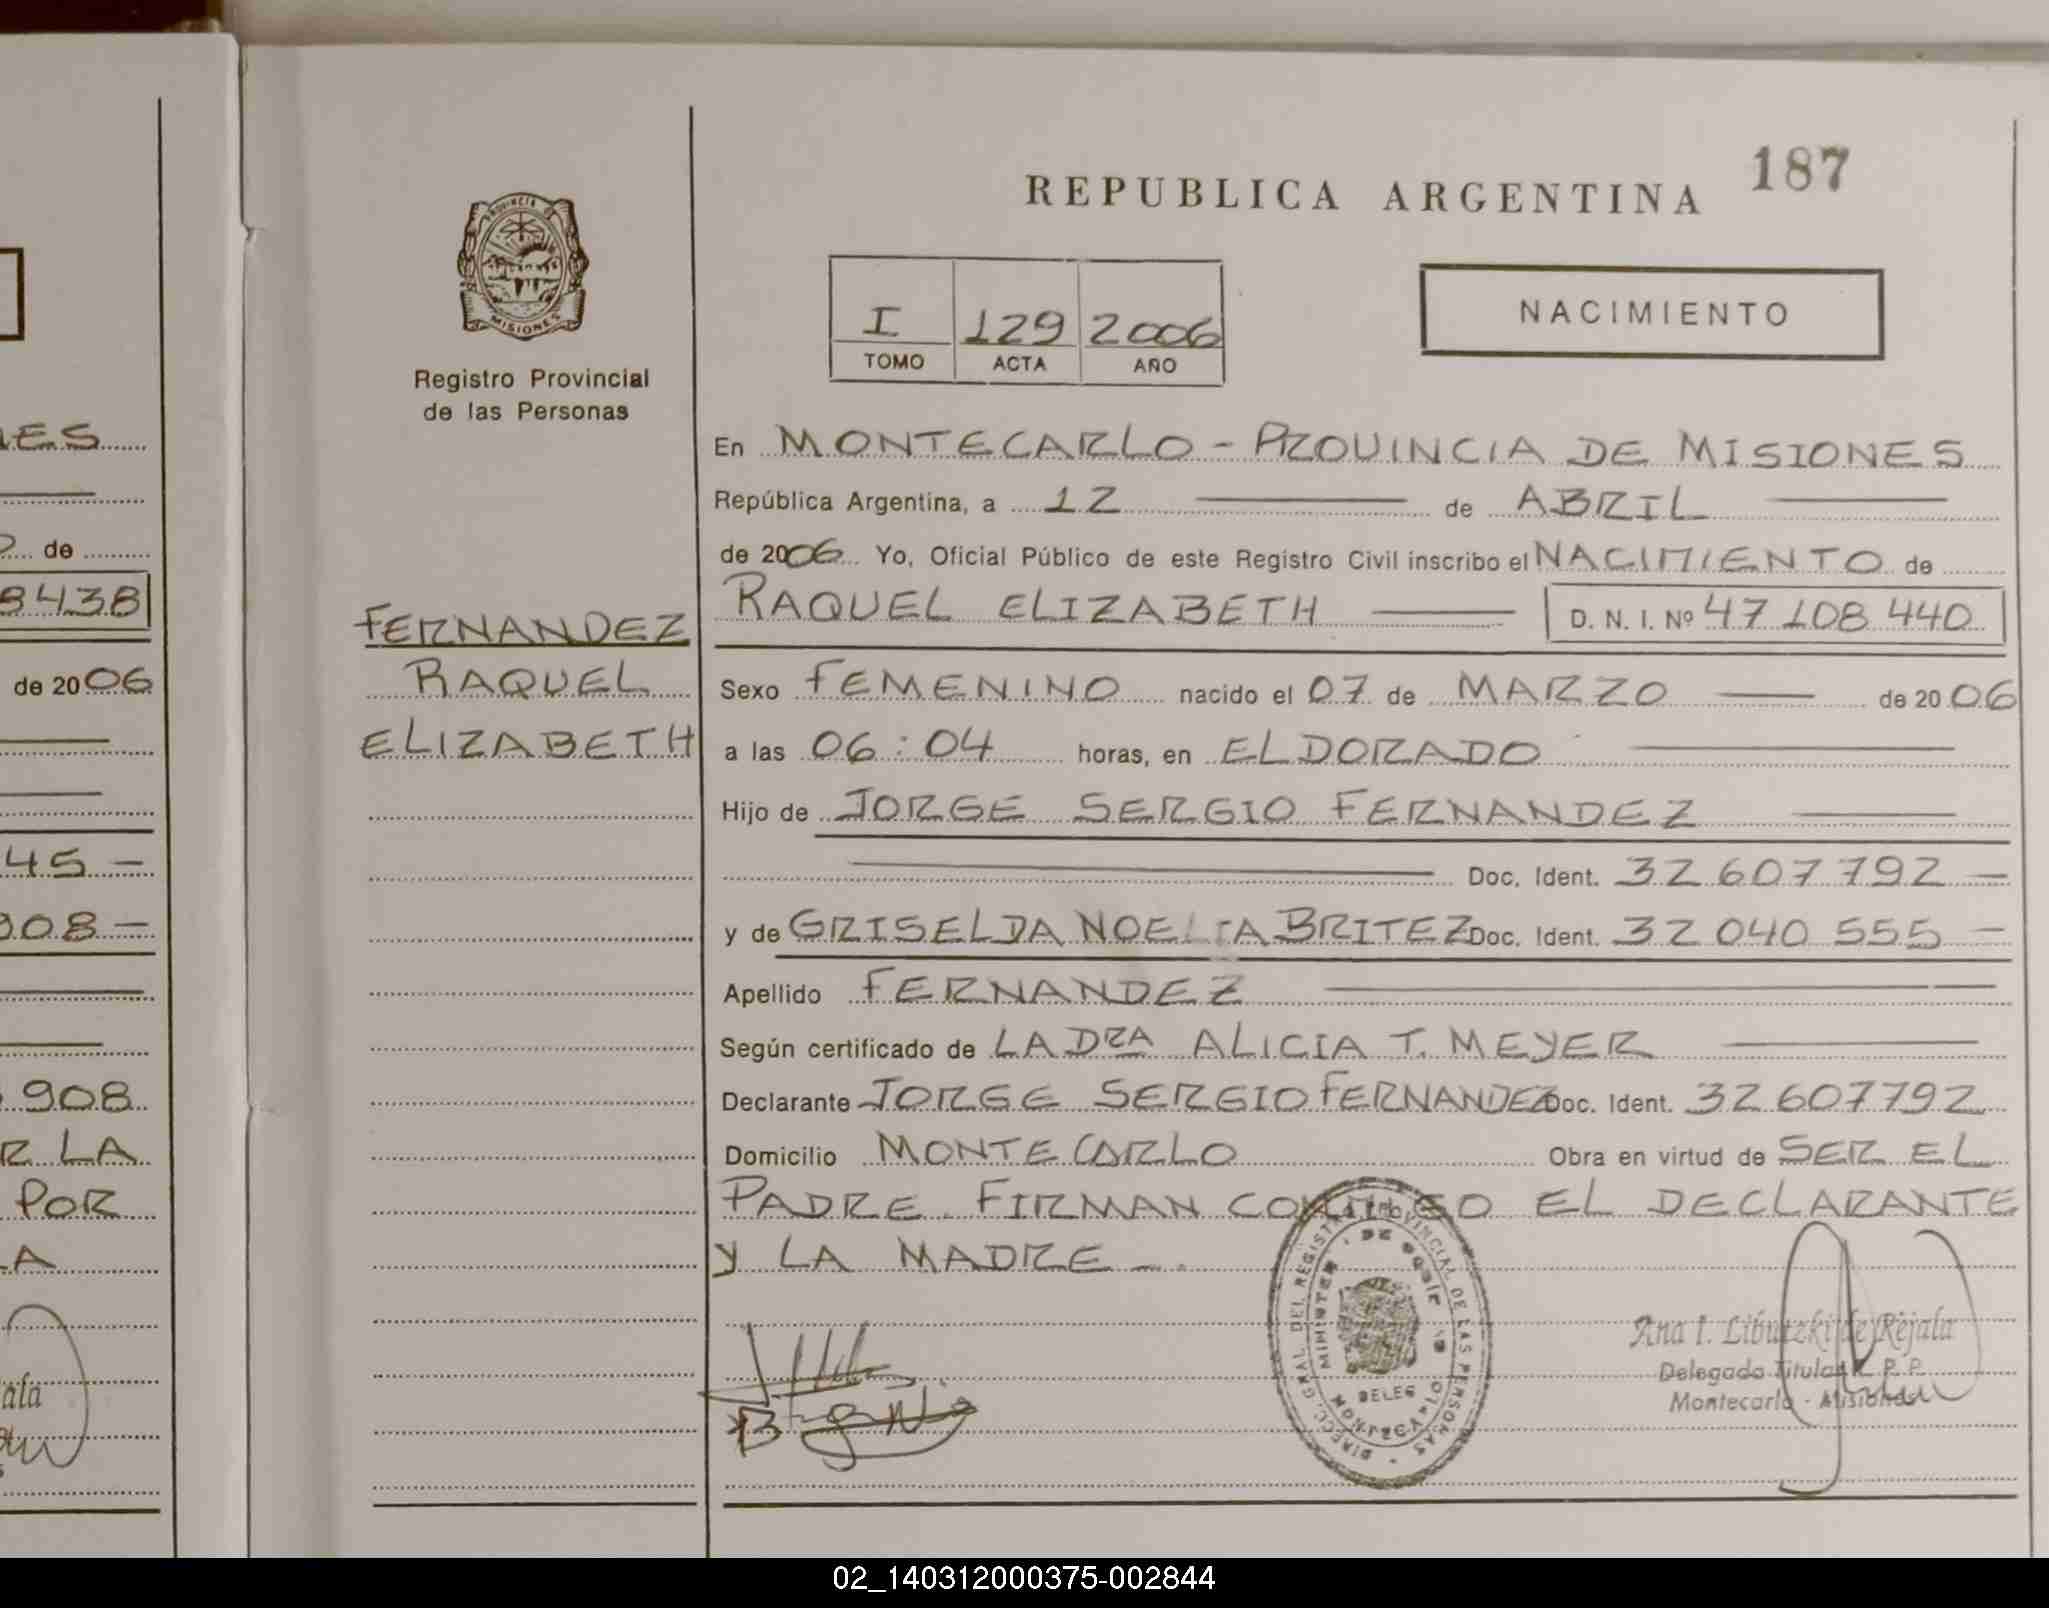 NES
de
8438
de 2006
45 -
908 -
908
R LA
POR
LA
ala
PROVINCIA DE
MISIONES
Registro Provincial
de las Personas
FERNANDEZ
RAQUEL
ELIZABETH
REPUBLICA ARGENTINA 187
I 129 2006
TOMO ACTA AÑO
NACIMIENTO
En MONTECARLO - PROVINCIA DE MISIONES
República Argentina, a 12 de ABRIL
de 2006 Yo, Oficial Público de este Registro Civil inscribo el NACIMIENTO de
RAQUEL ELIZABETH D. N. I. Nº 47 108 440
Sexo FEMENINO nacido el 07 de MARZO de 2006
a las 06:04 horas, en ELDORADO
Hijo de JORGE SERGIO FERNANDEZ
Doc. Ident. 32 607 792 -
y de GRISELDA NOELIA BRITEZ Doc. Ident. 32 040 555 -
Apellido FERNANDEZ
Según certificado de LA DRA ALICIA T. MEYER
Declarante JORGE SERGIO FERNANDEZ Doc. Ident. 32 607792
Domicilio MONTECARLO Obra en virtud de SER EL
PADRE. FIRMAN CONMIGO EL DECLARANTE
Y LA MADRE -.
DIRECC. GRAL. DEL REGISTRO PROVINCIAL DE LAS PERSONAS
DELEG
MONTECARLO
Ana I. Libutzki de Rejala
Delegado Titular R. P. P.
Montecarlo - Misiones
02_140312000375-002844